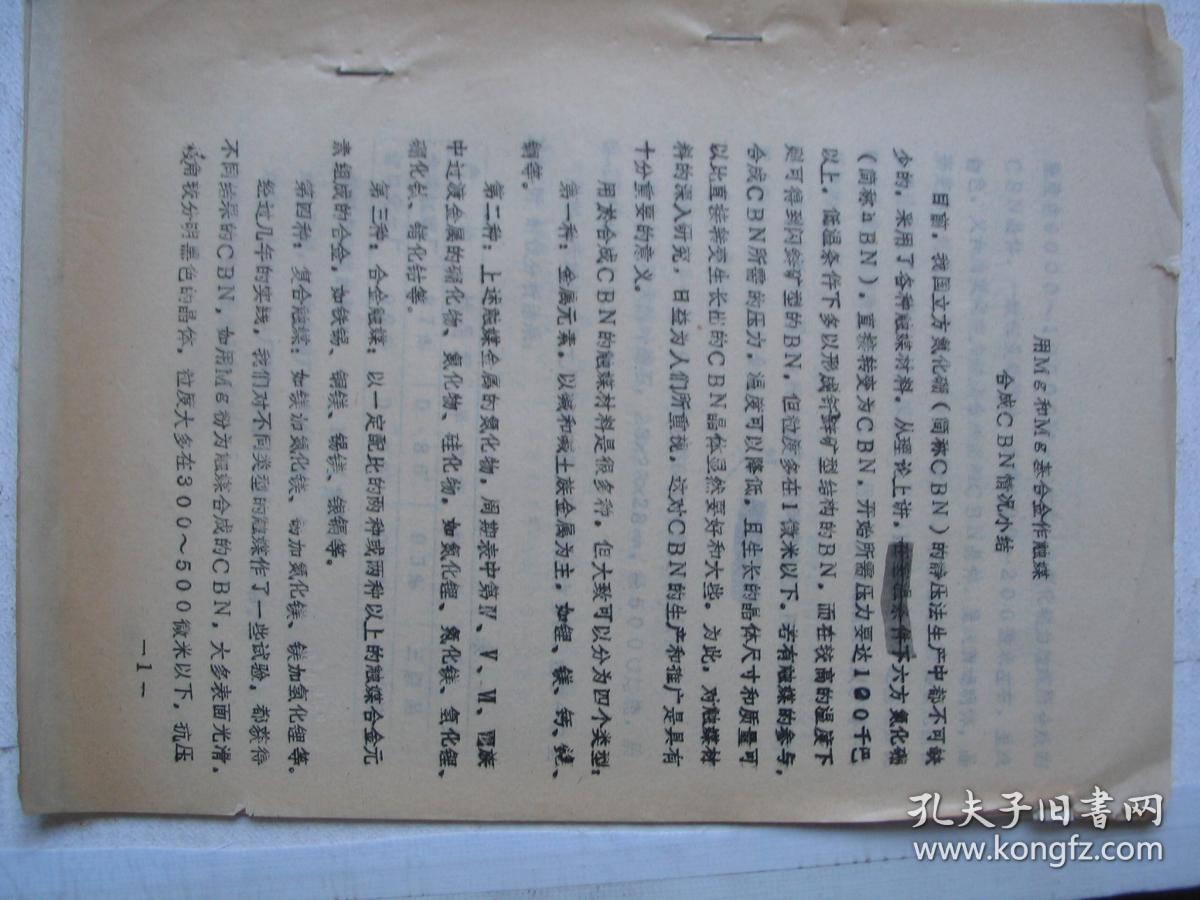 用Mg和Mg基合金作触媒
合成CBN情况小结
目前，我国立方氮化硼（简称CBN）的静压法生产中都不可缺
少的，采用了各种触媒材料。从理论上讲，条件下六方氮化硼
（简称hBN），直接转变为CBN，开始所需压力要达100千巴
以上，低温条件下多以形成纤锌矿型结构的BN，而在较高的温度下
则可得到闪锌矿型的BN，但粒度多在1微米以下。若有触媒的参与，
合成CBN所需的压力，温度可以降低，且生长的晶体尺寸和质量可
以比直接转变生长出的CBN晶体显然要好和大些。为此，对触媒材
料的深入研究，日益为人们所重视，这对CBN的生产和推广是具有
十分重要的意义。
用于合成CBN的触媒材料是很多种，但大致可以分为四个类型：
第一种：金属元素，以碱和碱土族金属为主，如锂、镁、钙、
铜等。
第二种：上述触媒金属的氮化物，周期表中第Ⅳ、Ⅴ、Ⅵ、Ⅷ族
中过渡金属的硼化物、氮化物、硅化物，如氮化锂、氮化镁、氢化锂、
硼化钴、硅化钴等。
第三种：合金触媒：以一定配比的两种或两种以上的触媒合金元
素组成的合金，如铁锡、铜镁、锡镁、银镉等。
第四种：复合触媒：如镁加氮化镁、钴加氮化镁、镁加氢化锂等。
经过几年的实践，我们对不同类型的触媒作了一些试验，都获得
不同结果的CBN，如用Mg粉为触媒合成的CBN，大多表面光滑，
棱角较分明黑色的晶体，粒度大多在300～500微米以下，抗压
—1—
孔夫子旧书网
www.kongfz.com